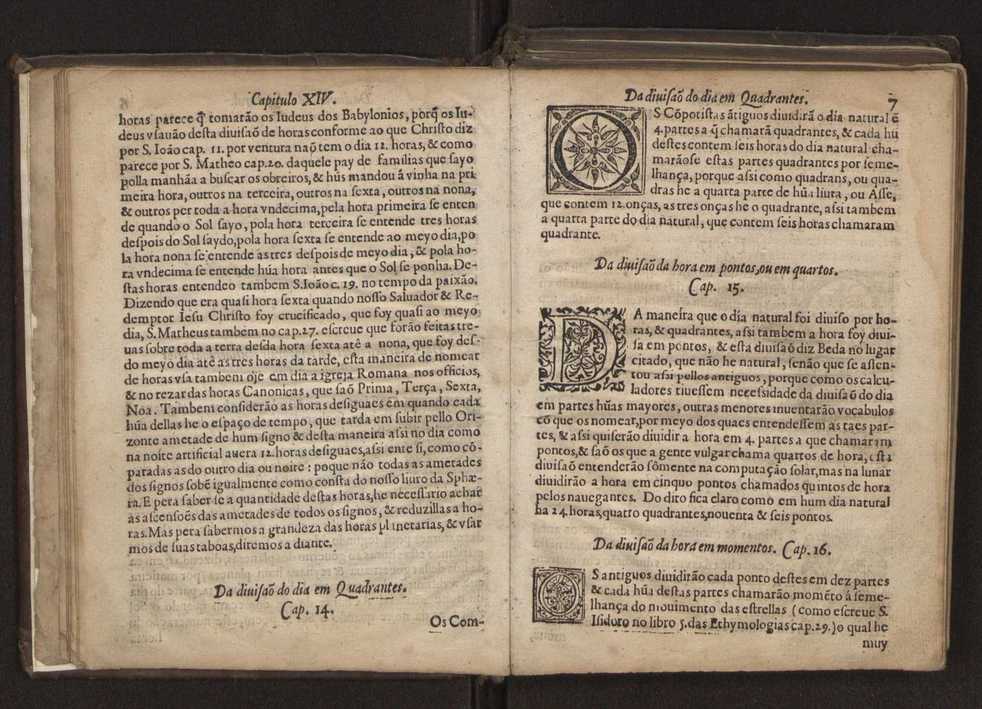 Capitulo XIV.
horas parece q̃ tomarão os Iudeus dos Babylonios, porq̃ os Iu-
deus vſauão deſta diuiſaõ de horas conforme ao que Chriſto diz
por S. Ioão cap. 11. por ventura naõ tem o dia 12. horas, & como
parece por S. Matheo cap.20. daquele pay de familias que ſayo
polla manhãa a buſcar os obreiros, & hũs mandou á vinha na pri
meira hora, outros na terceira, outros na ſexta, outros na nona,
& outros per toda a hora vndecima, pela hora primeira ſe enten
de quando o Sol ſayo, pola hora terceira ſe entende tres horas
deſpois do Sol ſaydo, pola hora ſexta ſe entende ao meyo dia, po
la hora nona ſe entende as tres deſpois de meyo dia, & pola ho-
ra vndecima ſe entende hũa hora antes que o Sol ſe ponha. De-
ſtas horas entendeo tambem S. Ioão c. 19. no tempo da paixão.
Dizendo que era quaſi hora ſexta quando noſſo Saluador & Re-
demptor Ieſu Chriſto foy crucificado, que foy quaſi ao meyo
dia, S. Matheus tambem no cap.27. eſcreue que forão feitas tre-
uas ſobre toda a terra desda hora ſexta atè a nona, que foy deſ-
do meyo dia atê as tres horas da tarde, eſta maneira de nomear
de horas vſa tambem oje em dia a igreja Romana nos officios,
& no rezar das horas Canonicas, que ſaõ Prima, Terça, Sexta,
Noa. Tambem conſiderão as horas deſiguaes em quando cada
hũa dellas he o eſpaço de tempo, que tarda em ſubir pello Ori-
zonte ametade de hum ſigno & deſta maneira aſsi no dia como
na noite artificial auera 12. horas deſiguaes, aſsi entre ſi, como cõ-
paradas as do outro dia ou noite: poque não todas as ametades
dos ſignos ſobẽ igualmente como conſta do noſſo liuro da Sphæ-
ra. E pera ſaber ſe a quantidade deſtas horas, he neceſſario achar
as aſcenſoẽs das ametades de todos os ſignos, & reduzillas a ho-
ras. Mas pera ſabermos a grandeza das horas planetarias, & vſar
mos de ſuas taboas, diremos a diante.
Da diuiſaõ do dia em Quadrantes.
Cap. 14.
Os Com-
Da diuiſaõ do dia em Quadrantes. 7
OS Cõpotiſtas ãtiguos diuidirã o dia natural ẽ
4. partes a q̃ chamarã quadrantes, & cada hũ
deſtes contem ſeis horas do dia natural cha-
marãoſe eſtas partes quadrantes por ſeme-
lhança, porque aſsi como quadrans, ou qua-
dras he a quarta parte de hũa liura, ou Aſſe,
que contem 12. onças, as tres onças he o quadrante, aſsi tambem
a quarta parte do dia natural, que contem ſeis horas chamaram
quadrante.
Da diuiſaõ da hora em pontos, ou em quartos.
Cap. 15.
DA maneira que o dia natural foi diuiſo por ho-
ras, & quadrantes, aſsi tambem a hora foy diui-
ſa em pontos, & eſta diuiſaõ diz Beda no lugar
citado, que não he natural, ſenão que ſe aſſen-
tou aſsi pellos antiguos, porque como os calcu-
ladores tiueſſem neceſsidade da diuiſaõ do dia
em partes hũas mayores, outras menores inuentarão vocabulos
cõ que os nomear, por meyo dos quaes entendeſſem as taes par-
tes, & aſsi quiſerão diuidir a hora em 4. partes a que chamaram
pontos, & ſaõ os que a gente vulgar chama quartos de hora, eſta
diuiſaõ entenderão ſômente na computação ſolar, mas na lunar
diuidirão a hora em cinquo pontos chamados quintos de hora
pelos nauegantes. Do dito fica claro como em hum dia natural
ha 24. horas, quatro quadrantes, nouenta & ſeis pontos.
Da diuiſaõ da hora em momentos. Cap. 16.
OS antiguos diuidirão cada ponto deſtes em dez partes
& cada hũa deſtas partes chamarão momẽto á ſeme-
lhança do mouimento das eſtrellas (como eſcreue S.
Iſidoro no libro 5. das Ethymologias cap. 29.) o qual he
muy